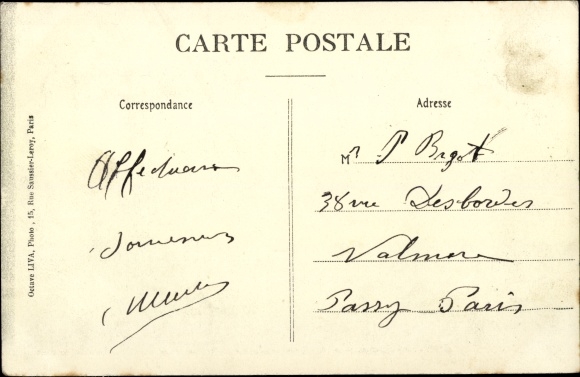 CARTE POSTALE
Correspondance
Adresse
Octave LIVA, Photo, 15, Rue Saussier-Leroy, Paris
Affectueux
Souvenirs
Mr P Bigot
38 rue Desbordes
Valmore
Passy Paris